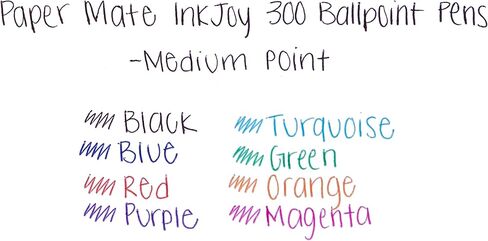 Paper Mate InkJoy 300 Ballpoint Pens
-Medium Point
Black
Blue
Red
Purple
Turquoise
Green
Orange
Magenta